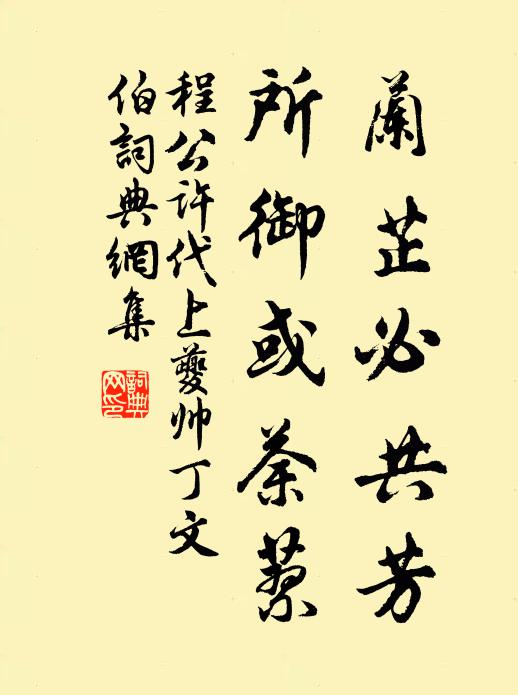 蘭芷必共芳
所御或荼
程公許代上夔帅丁文
伯詞典網集
詞典
网印